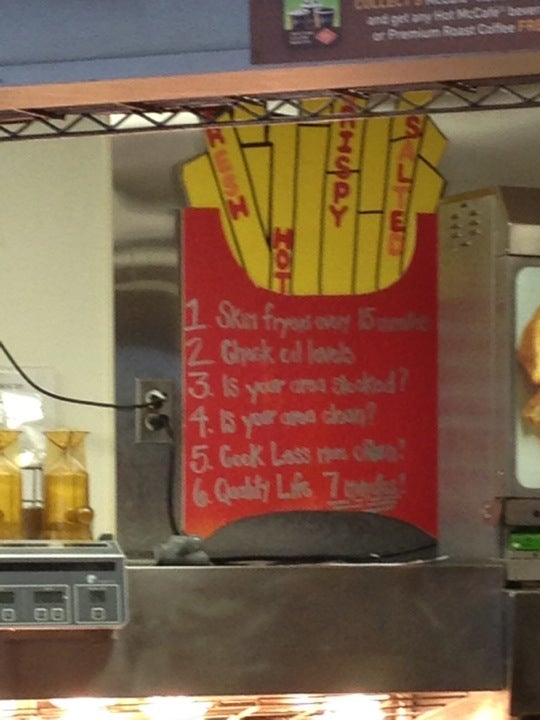 COLLECT 5
and get any Hot McCafé beve
or Premium Roast Coffee FRE
FRESH
HOT
CRISPY
SALTED
1. Skim fryers every 15 minutes
2. Check oil levels
3. Is your area stocked?
4. Is your area clean?
5. Cook Less more often!
6. Quality Life 7 minutes!